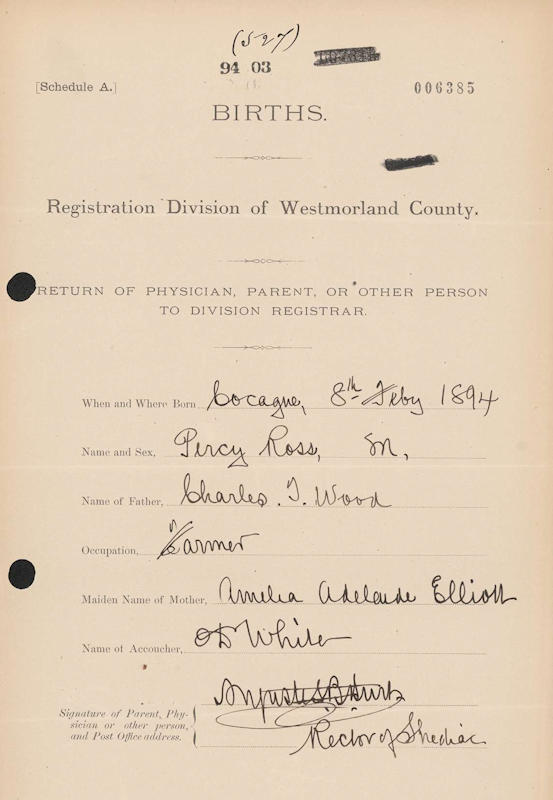 (527)
94 03
[Schedule A.]
006385
BIRTHS.
Registration Division of Westmorland County.
RETURN OF PHYSICIAN, PARENT, OR OTHER PERSON
TO DIVISION REGISTRAR.
When and Where Born Cocagne, 8th Feby 1894
Name and Sex, Percy Ross, M,
Name of Father, Charles. T. Wood
Occupation, Farmer
Maiden Name of Mother, Amelia Adelaide Elliott
Name of Accoucher, White
Signature of Parent, Phy-
sician or other person,
and Post Office address.
Rector of Shediac